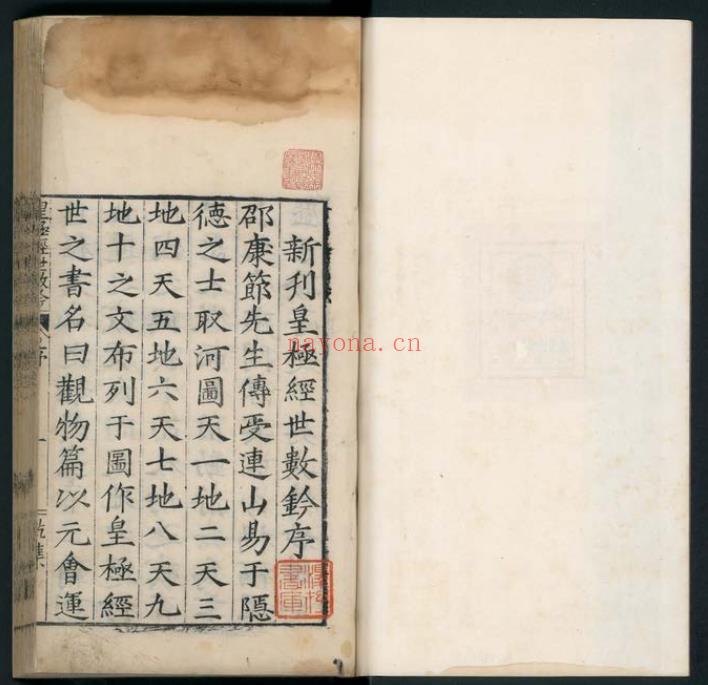 新刊皇極經世數鈐序
邵康節先生傳受連山易于隱
德之士取河圖天一地二天三
地四天五地六天七地八天九
地十之文布列于圖作皇極經
世之書名曰觀物篇以元會運
nayona.cn